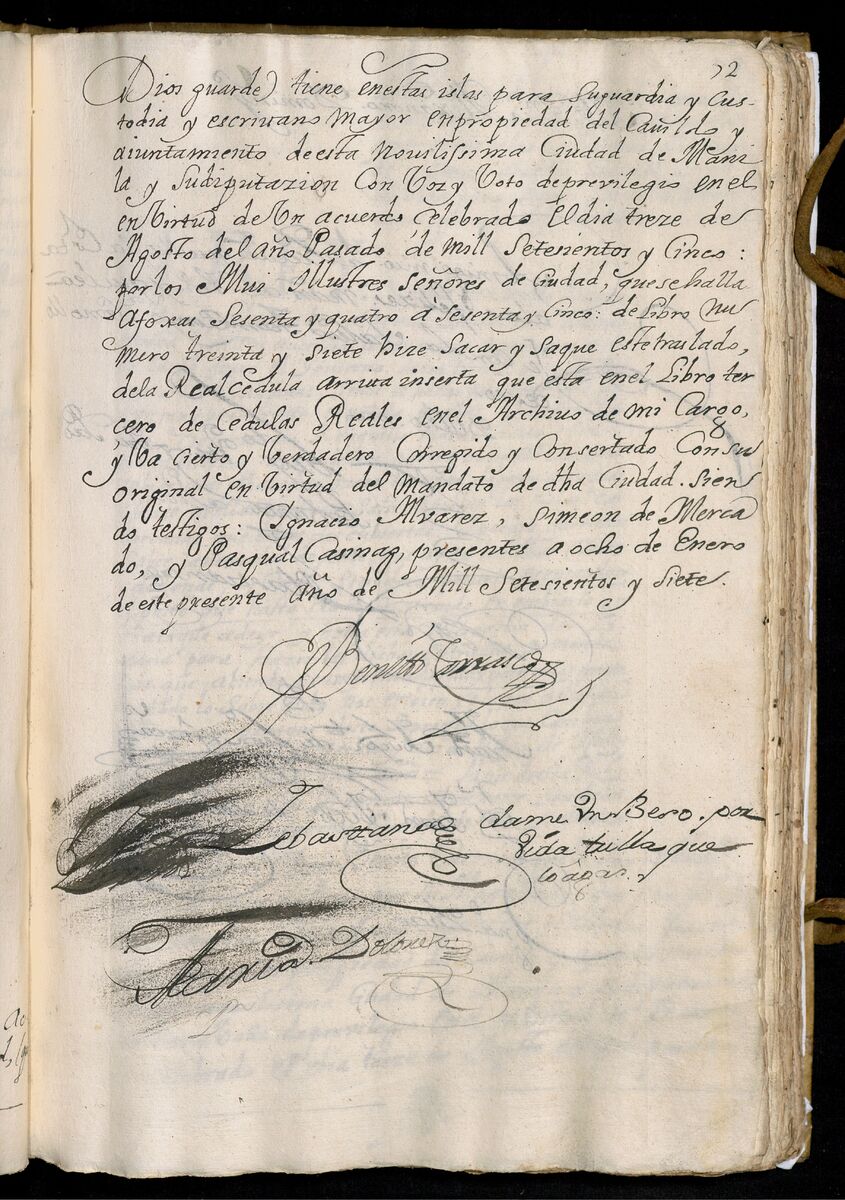 32
Dios guarde) tiene enestas islas para suguardia y cus-
todia y escriuano Mayor enpropiedad del Cauildo y
aiuntamiento deesta Novilissima Ciudad de Mani
la y sudiputazion Con Voz y Voto deprevilegio en el
en Virtud de Vn acuerdo Celebrado El dia treze de
Agosto del año Pasado de mill Setesientos y Cinco:
porlos Mui Illustres Señores de Ciudad, quesehalla
Afoxas Sesenta y quatro a Sesenta y Cinco: de Libro Nu
mero treinta y siete hize Sacar y Saque estetraslado,
dela Realcedula arriua inserta que esta enel Libro ter
cero de Cedulas Reales enel Archiuo de mi Cargo,
y Va cierto y Verdadero Corregido y Consertado Consu
original en Virtud del Mandato de dha Ciudad. Sien
do testigos: Ignacio Alvarez, Simeon de Merca
do, y Pasqual Casinag, presentes a ocho de Enero
de este presente Año de Mill Setesientos y Siete.
Benitto Carrasco
Sebasttiana dame Vn Bero. por
Vida tulla que
lo agas.
Maria Dolores